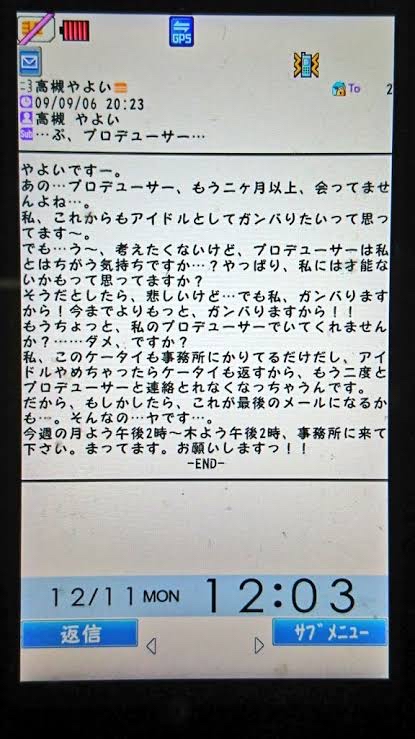 GPS
高槻やよい
To 2
09/09/06 20:23
高槻 やよい
Sub …ぷ、プロデューサー…
やよいですー。
あの…プロデューサー、もう二ヶ月以上、会ってませ
んよね…。
私、これからもアイドルとしてガンバりたいって思っ
てます〜。
でも…う〜、考えたくないけど、プロデューサーは私
とはちがう気持ちですか…？やっぱり、私には才能な
いかもって思ってますか？
そうだとしたら、悲しいけど…でも私、ガンバります
から！今までよりもっと、ガンバりますから！！
もうちょっと、私のプロデューサーでいてくれません
か？……ダメ、ですか？
私、このケータイも事務所にかりてるだけだし、アイ
ドルやめちゃったらケータイも返すから、もう二度と
プロデューサーと連絡とれなくなっちゃうんです。
だから、もしかしたら、これが最後のメールになるか
も…。そんなの…ヤです…。
今週の月よう午後2時〜木よう午後2時、事務所に来て
下さい。まってます。お願いしますっ！！
-END-
12/11 MON 12:03
返信
ｻﾌﾞﾒﾆｭｰ